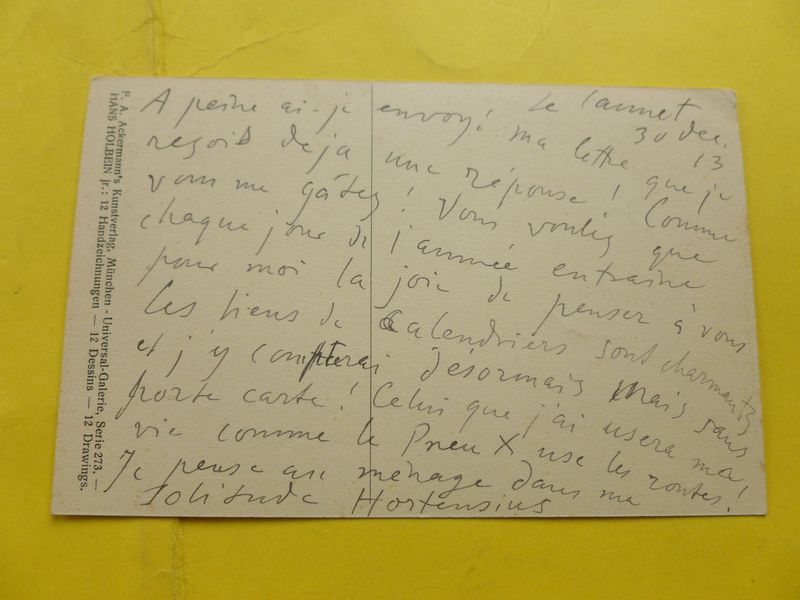 F. A. Ackermann's Kunstverlag, München - Universal-Galerie, Serie 273. —
HANS HOLBEIN jr.: 12 Handzeichnungen — 12 Dessins — 12 Drawings.
Le Cannet
30 dec. 13
A peine ai-je envoyé ma lettre que je
reçois deja une réponse ! Comme
vous me gâtez ! Vous voulez que
chaque jour de l'année entraine
pour moi la joie de penser à vous
Les tiens de Calendriers sont charmants
et j'y compterai désormais Mais sans
porte carte ! Celui que j'ai usera ma
vie comme le Pneu X use les routes !
Je pense au ménage dans ma
solitude Hortensius